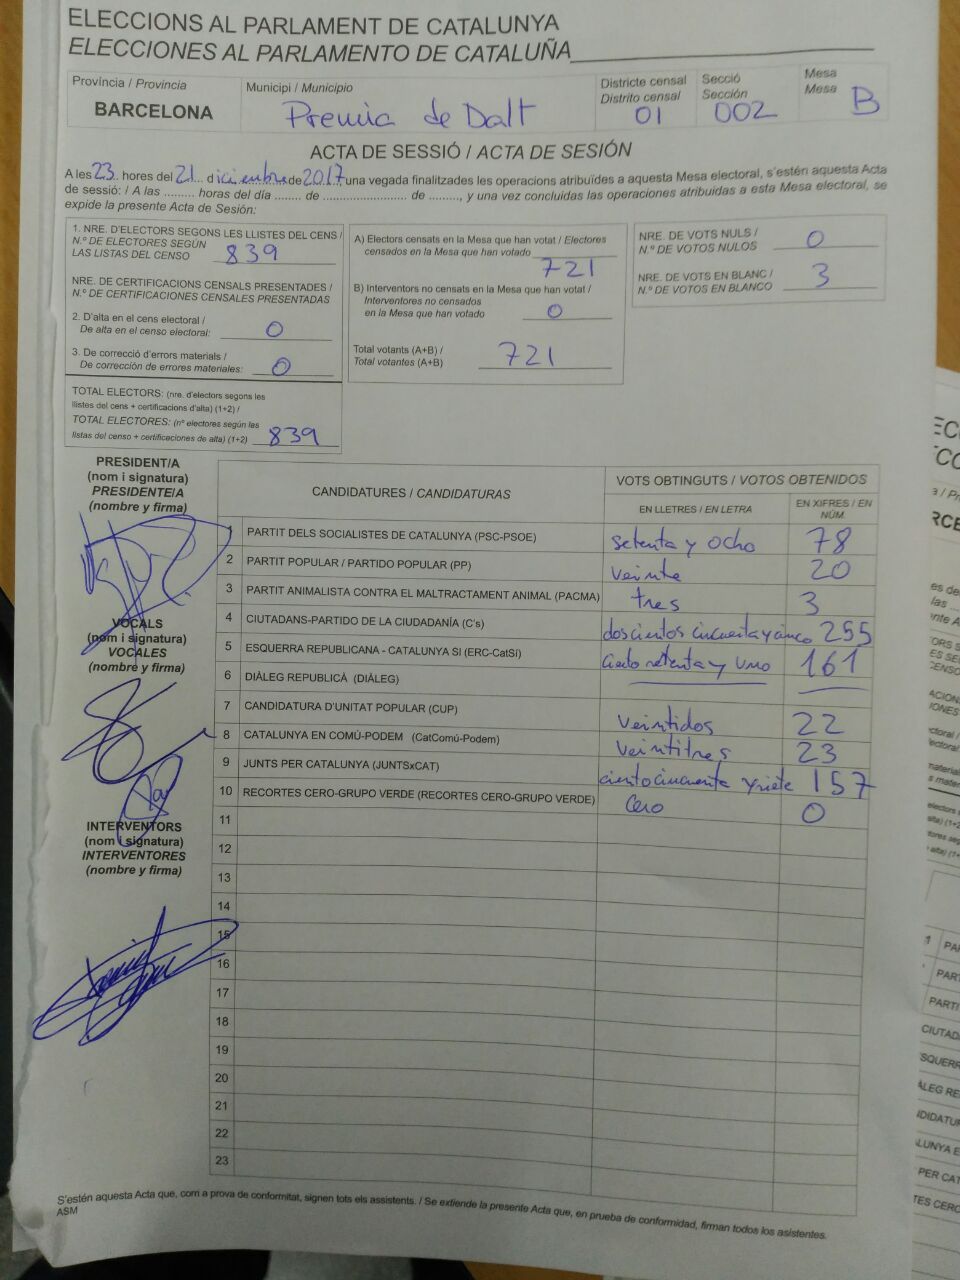 ELECCIONS AL PARLAMENT DE CATALUNYA
ELECCIONES AL PARLAMENTO DE CATALUÑA
Província / Provincia
BARCELONA
Municipi / Municipio
Premia de Dalt
Districte censal
Distrito censal
01
Secció
Sección
002
Mesa
Mesa
B
ACTA DE SESSIÓ / ACTA DE SESIÓN
A les 23 hores del 21 diciembre de 2017 una vegada finalitzades les operacions atribuïdes a aquesta Mesa electoral, s'estén aquesta Acta
de sessió: / A las ......... horas del día ........ de ........................... de ........., y una vez concluidas las operaciones atribuidas a esta Mesa electoral, se
expide la presente Acta de Sesión:
1. NRE. D'ELECTORS SEGONS LES LLISTES DEL CENS /
N.º DE ELECTORES SEGÚN
LAS LISTAS DEL CENSO 839
NRE. DE CERTIFICACIONS CENSALS PRESENTADES /
N.º DE CERTIFICACIONES CENSALES PRESENTADAS
2. D'alta en el cens electoral /
De alta en el censo electoral: 0
3. De correcció d'errors materials /
De corrección de errores materiales: 0
TOTAL ELECTORS: (nre. d'electors segons les
llistes del cens + certificacions d'alta) (1+2) /
TOTAL ELECTORES: (nº electores según las
listas del censo + certificaciones de alta) (1+2) 839
A) Electors censats en la Mesa que han votat / Electores
censados en la Mesa que han votado 721
B) Interventors no censats en la Mesa que han votat /
Interventores no censados
en la Mesa que han votado 0
Total votants (A+B) /
Total votantes (A+B) 721
NRE. DE VOTS NULS /
N.º DE VOTOS NULOS 0
NRE. DE VOTS EN BLANC /
N.º DE VOTOS EN BLANCO 3
PRESIDENT/A
(nom i signatura)
PRESIDENTE/A
(nombre y firma)
VOCALS
(nom i signatura)
VOCALES
(nombre y firma)
INTERVENTORS
(nom i signatura)
INTERVENTORES
(nombre y firma)
CANDIDATURES / CANDIDATURAS
VOTS OBTINGUTS / VOTOS OBTENIDOS
EN LLETRES / EN LETRA
EN XIFRES / EN
NÚM.
1 PARTIT DELS SOCIALISTES DE CATALUNYA (PSC-PSOE) setenta y ocho 78
2 PARTIT POPULAR / PARTIDO POPULAR (PP) veinte 20
3 PARTIT ANIMALISTA CONTRA EL MALTRACTAMENT ANIMAL (PACMA) tres 3
4 CIUTADANS-PARTIDO DE LA CIUDADANÍA (C's) doscientos cincuenta y cinco 255
5 ESQUERRA REPUBLICANA - CATALUNYA SÍ (ERC-CatSí) y uno 161
6 DIÀLEG REPUBLICÀ (DIÀLEG)
7 CANDIDATURA D'UNITAT POPULAR (CUP) veintidos 22
8 CATALUNYA EN COMÚ-PODEM (CatComú-Podem) veintitres 23
9 JUNTS PER CATALUNYA (JUNTSxCAT) ciento cincuenta y siete 157
10 RECORTES CERO-GRUPO VERDE (RECORTES CERO-GRUPO VERDE) cero 0
11
12
13
14
15
16
17
18
19
20
21
22
23
S'estén aquesta Acta que, com a prova de conformitat, signen tots els assistents. / Se extiende la presente Acta que, en prueba de conformidad, firman todos los asistentes.
ASM